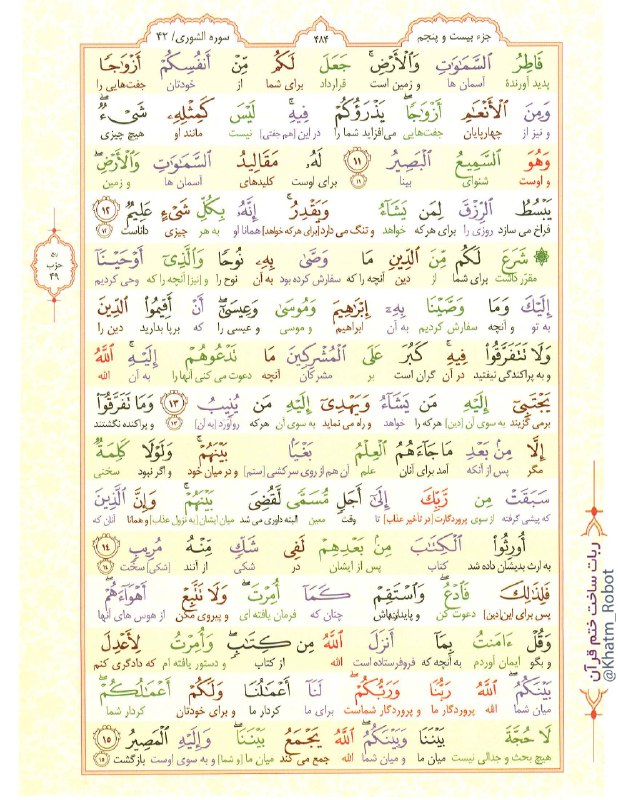 جزء بیست و پنجم
۴۸۴
سوره الشوری/ ۴۲
فَاطِرُ السَّمَٰوَٰتِ وَالْأَرْضِ ۚ جَعَلَ لَكُم مِّنْ أَنفُسِكُمْ أَزْوَٰجًا
پدید آورندهٔ آسمان ها و زمین است قرارداد برای شما از خودتان جفت‌هایی را
وَمِنَ الْأَنْعَٰمِ أَزْوَٰجًا ۖ يَذْرَؤُكُمْ فِيهِ ۚ لَيْسَ كَمِثْلِهِ شَيْءٌ ۖ
و نیز از چهارپایان جفت‌هایی می‌افزاید شما را در این [هم جفتی] نیست مانند او هیچ چیزی
وَهُوَ السَّمِيعُ الْبَصِيرُ ۱۱ لَهُ مَقَالِيدُ السَّمَٰوَٰتِ وَالْأَرْضِ ۖ
و اوست شنوای بینا ۱۱ برای اوست کلیدهای آسمان ها و زمین
يَبْسُطُ الرِّزْقَ لِمَن يَشَآءُ وَيَقْدِرُ ۚ إِنَّهُ بِكُلِّ شَيْءٍ عَلِيمٌ ۱۲
فراخ می سازد روزی را برای هرکه خواهد و تنگ می دارد [برای هرکه خواهد] همانا او به هر چیزی داناست ۱۲
شَرَعَ لَكُم مِّنَ الدِّينِ مَا وَصَّىٰ بِهِ نُوحًا وَالَّذِيٓ أَوْحَيْنَآ
مقرّر داشت برای شما از دین آنچه را که سفارش کرده بود به آن نوح را و [نیز] آنچه را که وحی کردیم
إِلَيْكَ وَمَا وَصَّيْنَا بِهِ إِبْرَٰهِيمَ وَمُوسَىٰ وَعِيسَىٰٓ ۖ أَنْ أَقِيمُوا۟ الدِّينَ
به تو و آنچه سفارش کردیم به آن ابراهیم و موسی و عیسی را که برپا بدارید دین را
وَلَا تَتَفَرَّقُوا۟ فِيهِ ۚ كَبُرَ عَلَى الْمُشْرِكِينَ مَا تَدْعُوهُمْ إِلَيْهِ ۚ اللَّهُ
و به پراکندگی نیفتید در آن گران است بر مشرکان آنچه دعوت می کنی آنها را به آن الله
يَجْتَبِيٓ إِلَيْهِ مَن يَشَآءُ وَيَهْدِيٓ إِلَيْهِ مَن يُنِيبُ ۱۳ وَمَا تَفَرَّقُوٓا۟
برمی گزیند به سوی آن [دین] هرکه را خواهد و راه می نماید به سوی آن هرکه روآورد [به آن] ۱۳ و پراکنده نگشتند
إِلَّا مِنۢ بَعْدِ مَا جَآءَهُمُ الْعِلْمُ بَغْيًۢا بَيْنَهُمْ ۚ وَلَوْلَا كَلِمَةٌ
مگر پس از آنکه آمد برای آنان علم آن هم از روی سرکشی [ستم] و در میان خود و اگر نبود سخنی
سَبَقَتْ مِن رَّبِّكَ إِلَىٰٓ أَجَلٍ مُّسَمًّى لَّقُضِيَ بَيْنَهُمْ ۚ وَإِنَّ الَّذِينَ
که پیشی گرفته از سوی پروردگارت [در تأخیر عذاب] تا وقت معین البته داوری می شد میان ایشان [به نزول عذاب] و همانا آنان که
أُورِثُوا۟ الْكِتَٰبَ مِنۢ بَعْدِهِمْ لَفِي شَكٍّ مِّنْهُ مُرِيبٍ ۱۴
به ارث بدیشان داده شد کتاب پس از ایشان در شکی از آنند [شکی] سخت ۱۴
فَلِذَٰلِكَ فَادْعُ ۖ وَاسْتَقِمْ كَمَآ أُمِرْتَ ۖ وَلَا تَتَّبِعْ أَهْوَآءَهُمْ ۖ
پس برای این [دین] دعوت کن و پایدارباش چنان که فرمان یافته ای و پیروی مکن از هوس های آنها
وَقُلْ ءَامَنتُ بِمَآ أَنزَلَ اللَّهُ مِن كِتَٰبٍ ۖ وَأُمِرْتُ لِأَعْدِلَ
و بگو ایمان آوردم به آنچه که فروفرستاده است الله از کتاب و دستور یافته ام که دادگری کنم
بَيْنَكُمُ ۖ اللَّهُ رَبُّنَا وَرَبُّكُمْ ۖ لَنَآ أَعْمَٰلُنَا وَلَكُمْ أَعْمَٰلُكُمْ ۖ
میان شما الله پروردگار ما و پروردگار شماست برای ما کردار ما و برای خودتان کردار شما
لَا حُجَّةَ بَيْنَنَا وَبَيْنَكُمُ ۖ اللَّهُ يَجْمَعُ بَيْنَنَا ۖ وَإِلَيْهِ الْمَصِيرُ ۱۵
هیچ بحث و جدالی نیست میان ما و میان شما الله جمع می کند میان ما [و شما] و به سوی اوست بازگشت ۱۵
حزب
۴۹
ربات ساخت ختم قرآن
@Khatm_Robot